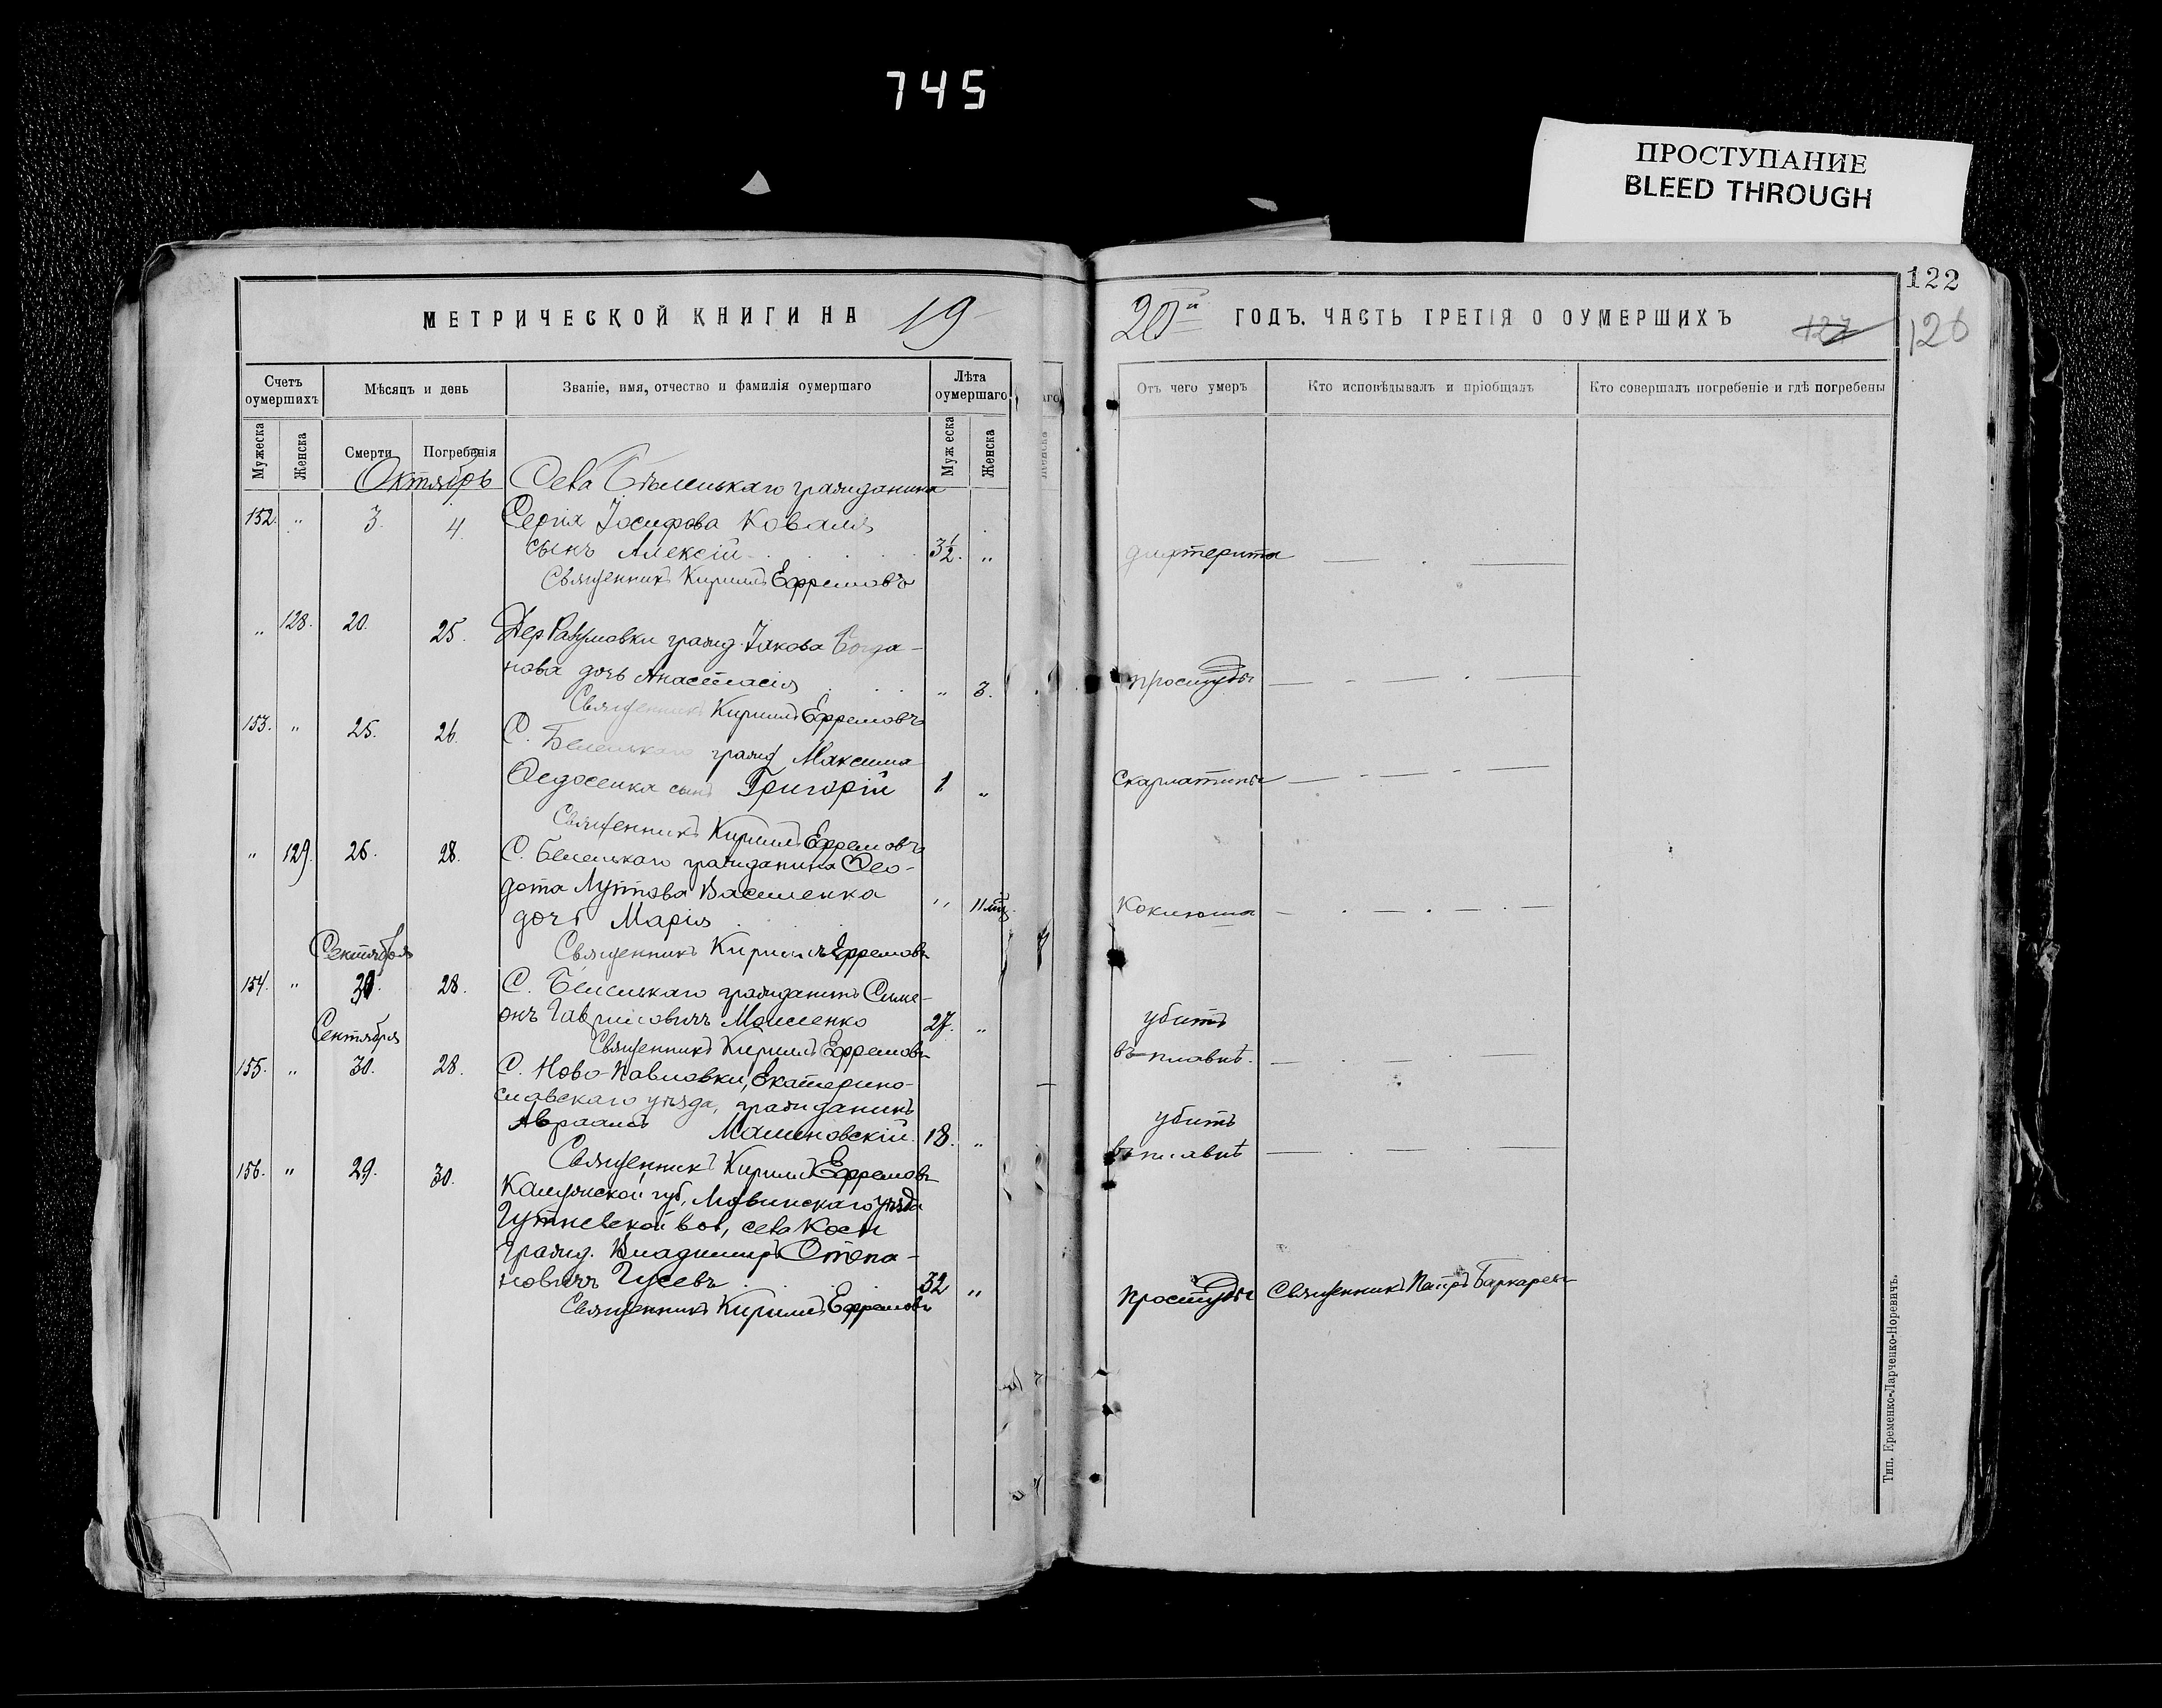 745
ПРОСТУПАНИЕ
BLEED THROUGH
122
МЕТРИЧЕСКОЙ КНИГИ НА 19
20й ГОДЪ. ЧАСТЬ ТРЕТІЯ О ОУМЕРШИХЪ
127
126
Счетъ оумершихъ
Мѣсяцъ и день
Званіе, имя, отчество и фамилія оумершаго
Лѣта оумершаго
Отъ чего умеръ
Кто исповѣдывалъ и пріобщалъ
Кто совершалъ погребеніе и гдѣ погребены
Мужеска
Женска
Смерти
Погребенія
Муж еска
Женска
Октябрь
Села Бѣленькаго гражданина
152. " 3. 4. Сергія Іосифова Коваля
сынъ Алексій 3½. " дифтерита
Священникъ Кириллъ Ефремовъ
" 128. 20. 25. Дер. гражд. Іакова Богда-
нова дочь Анастасія " 3. простуды
Священникъ Кириллъ Ефремовъ
153. " 25. 26. С. Беленькаго гражд Максима
Федосенка сынъ Григорій 1 " скарлатины
Священникъ Кириллъ Ефремовъ
" 129. 26. 28. С. Беленькаго гражданина Фео-
дота Василенка
дочь Марія " 11 коклюша
Священникъ Кириллъ Ефремовъ
Сентября
154. " 30. 28. С. Беленькаго гражданинъ Симе-
онъ Гавриловичъ Моисенко 27. " убитъ
въ плавнѣ.
Священникъ Кириллъ Ефремовъ
Сентября
155. " 30. 28. С. Ново-Павловки, Екатерино-
славскаго уѣзда, гражданинъ
Авраамъ Малиновскій. 18. " убитъ
въ плавнѣ
Священникъ Кириллъ Ефремовъ
156. " 29. 30. Калужской губ, уѣзда
вол, села
гражд. Владимиръ Степа-
новичъ Гусевъ 32 " простуды Священникъ Петръ
Священникъ Кириллъ Ефремовъ
Тип. Еременко-Ларченко-Норевичъ.